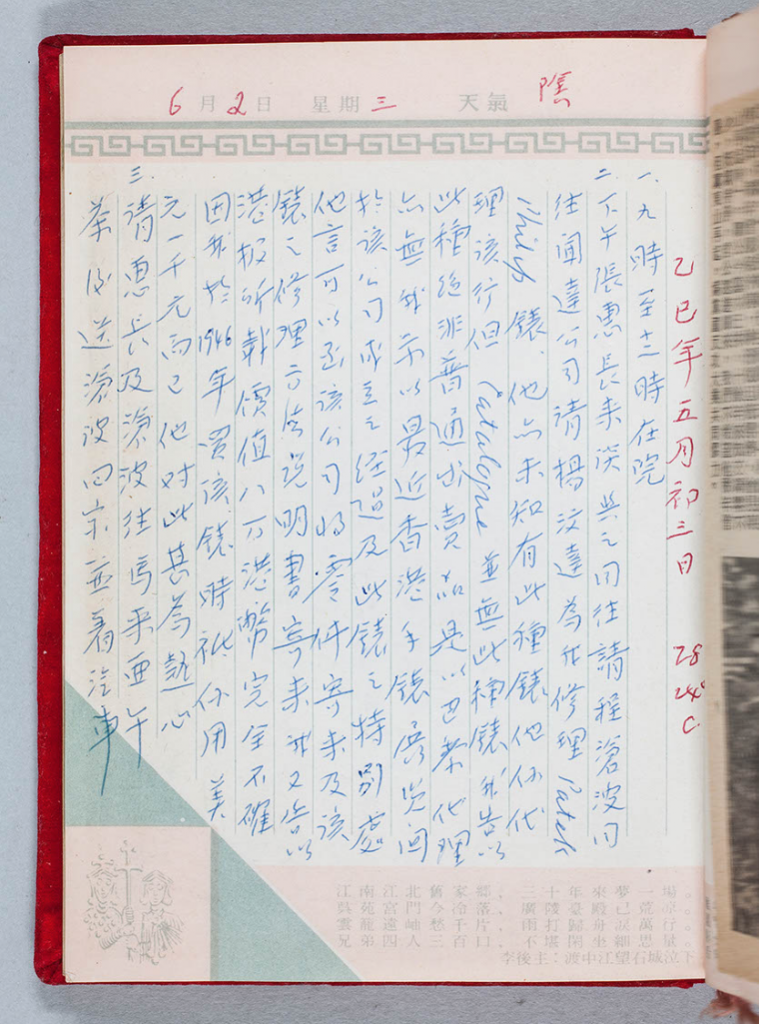 6月2日 星期三 天氣 陰
乙巳年五月初三日 28 24°C
一. 九時至十二時在院
二. 下午張惠長來談與之同往請程滄波同
往聞達公司請楊汶達為我修理Patek
Philip 錶、他亦未知有此種錶他係代
理該行但 Catalogue 並無此種錶我告以
此種絕非普通出賣品是以巴黎代理
亦無我示以最近香港手錶展覽
於該公司成立之經過及此錶之特別處
他言可以函該公司將零件寄來及該
錶之修理方法說明書寄來我又告以
港報所載價值八万港幣完全不確
因我於1946年買該錶時祇係用美
元一千元而已他對此甚為熱心
三. 請惠長及滄波往馬來亞午
茶後送滄波回家並看汽車
江南江北舊家鄉，三十年來夢一場。
吳苑宮門今冷落，廣陵臺殿已荒涼。
雲籠遠岫愁千片，雨打歸舟淚萬行。
兄弟四人三百口，不堪閒坐細思量。
李後主：渡中江望石城泣下